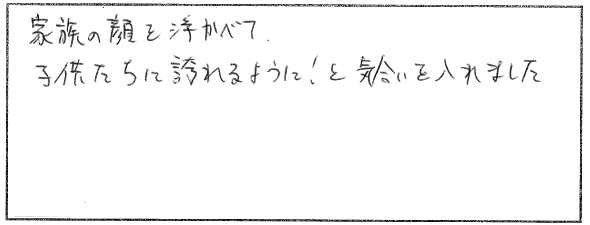 家族の顔を浮かべて.
子供たちに誇れるように!と気合いを入れました